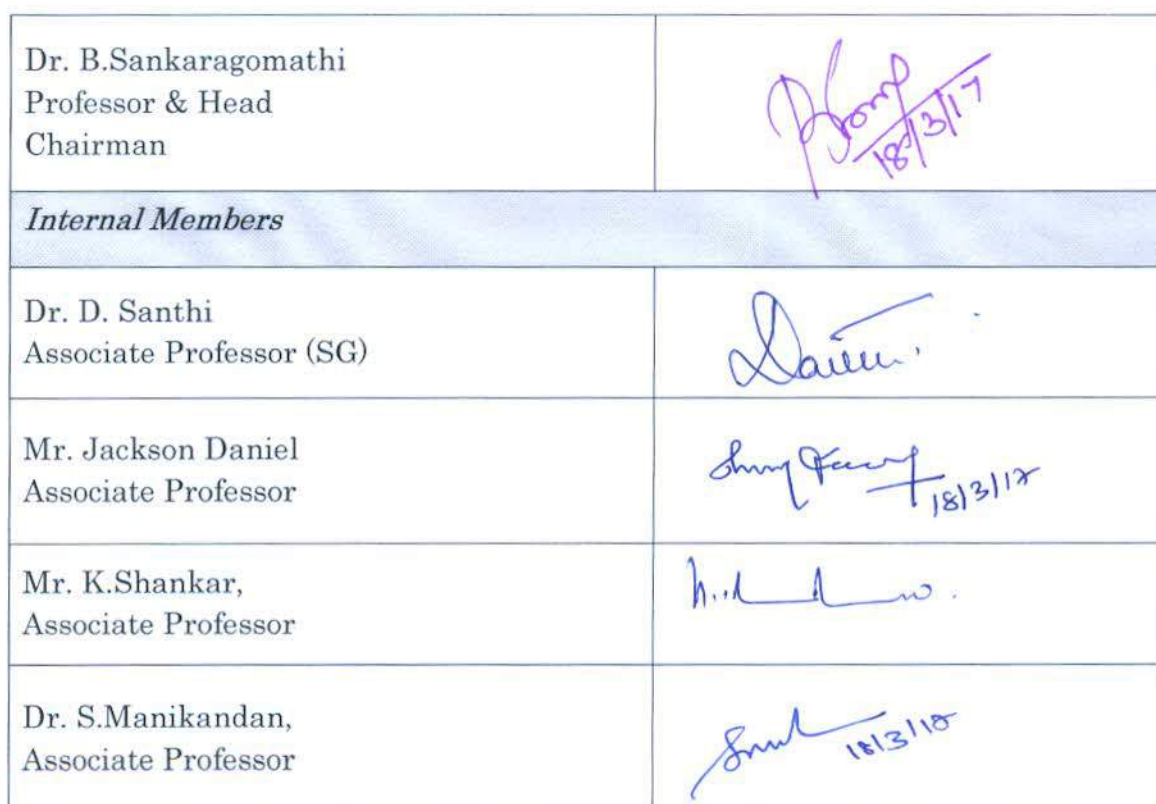 Dr. B.Sankaragomathi
Professor & Head
Chairman
18/3/17
Internal Members
Dr. D. Santhi
Associate Professor (SG)
Mr. Jackson Daniel
Associate Professor
18/3/17
Mr. K.Shankar,
Associate Professor
Dr. S.Manikandan,
Associate Professor